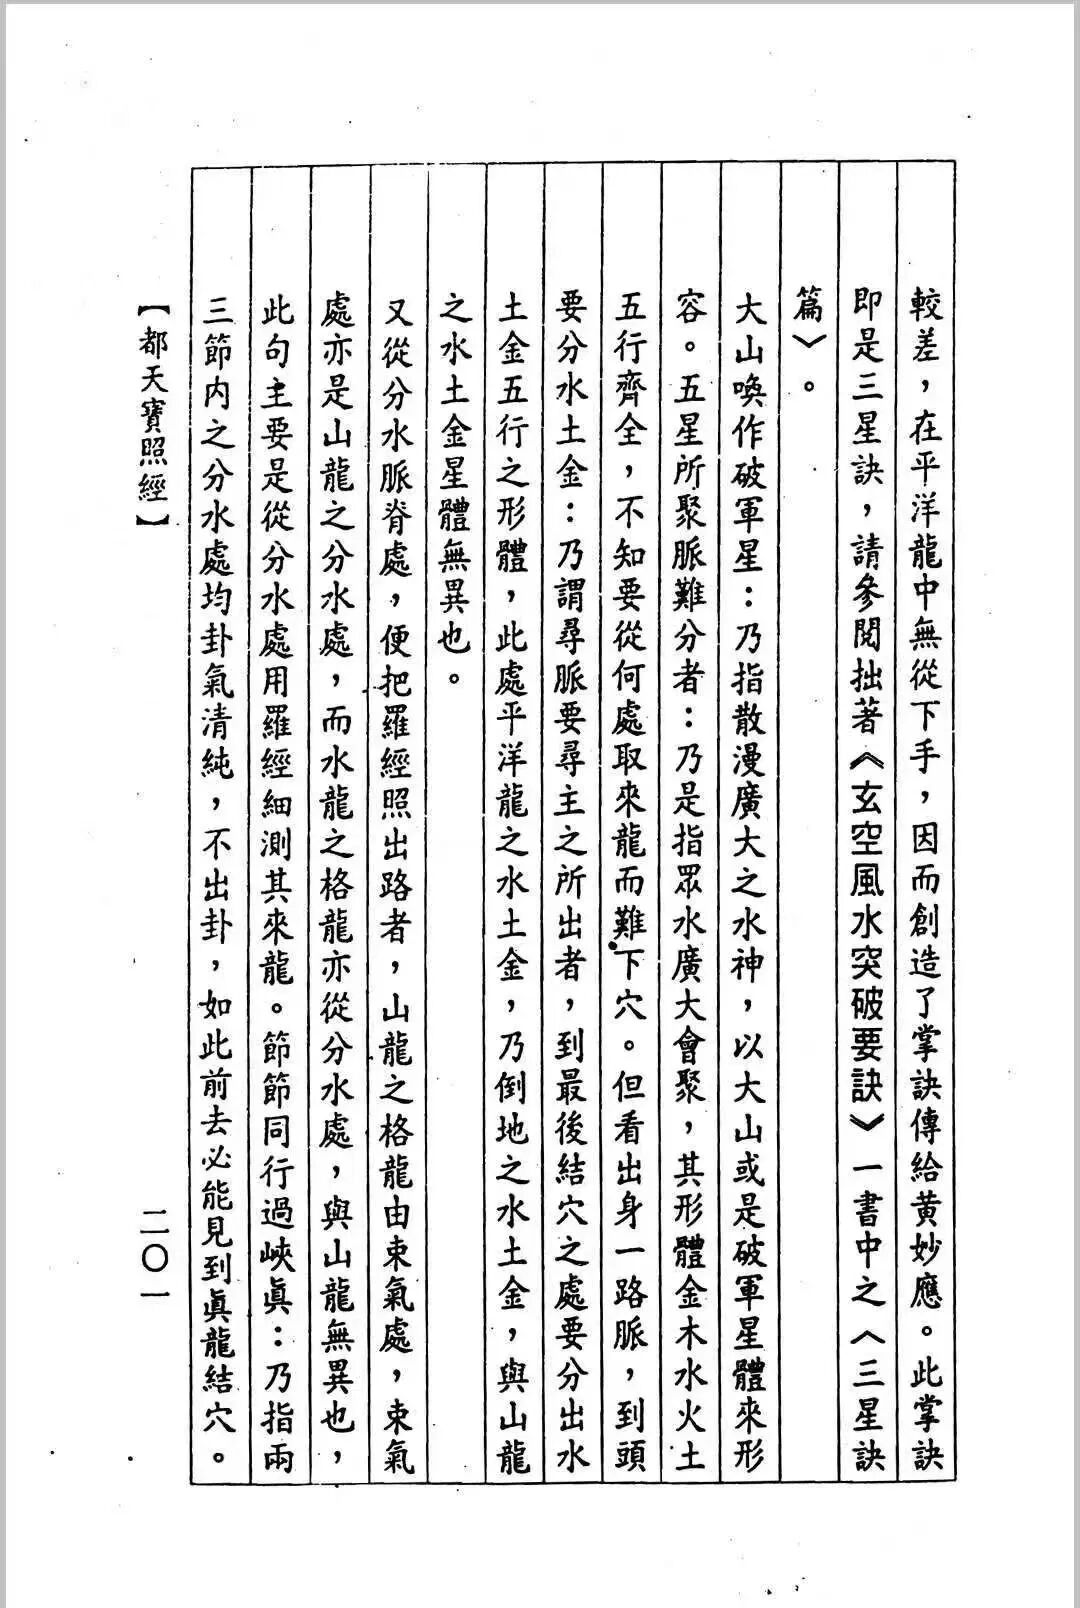 較差，在平洋龍中無從下手，因而創造了掌訣傳給黄妙應。此掌訣
即是三星訣，請參閱拙著《玄空風水突破要訣》一書中之〈三星訣
篇〉。
大山喚作破軍星：乃指散漫廣大之水神，以大山或是破軍星體來形
容。五星所聚脈難分者：乃是指眾水廣大會聚，其形體金木水火土
五行齊全，不知要從何處取來龍而難下穴。但看出身一路脈，到頭
要分水土金：乃謂尋脈要尋主之所出者，到最後結穴之處要分出水
土金五行之形體，此處平洋龍之水土金，乃倒地之水土金，與山龍
之水土金星體無異也。
又從分水脈脊處，便把羅經照出路者，山龍之格龍由束氣處，束氣
處亦是山龍之分水處，而水龍之格龍亦從分水處，與山龍無異也，
此句主要是從分水處用羅經細測其來龍。節節同行過峽眞：乃指兩
三節内之分水處均卦氣清純，不出卦，如此前去必能見到眞龍結穴。
【都天寶照經】
二〇一